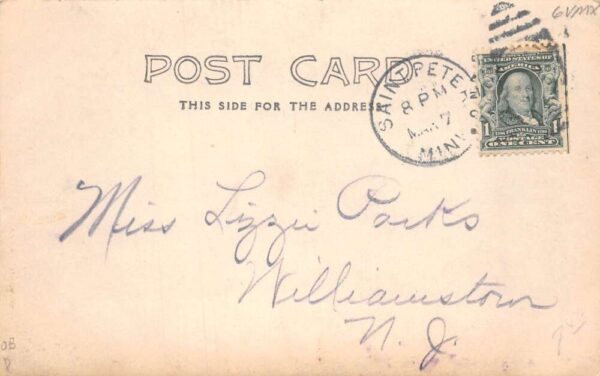 6VMX
POST CARD
THIS SIDE FOR THE ADDRESS
SAINT PETER
8 PM
MAR 7
MINN
UNITED STATES OF
1 1
FRANKLIN
POSTAGE
ONE CENT
Miss Lizzie Parks
Williamstown
N. J.
OB